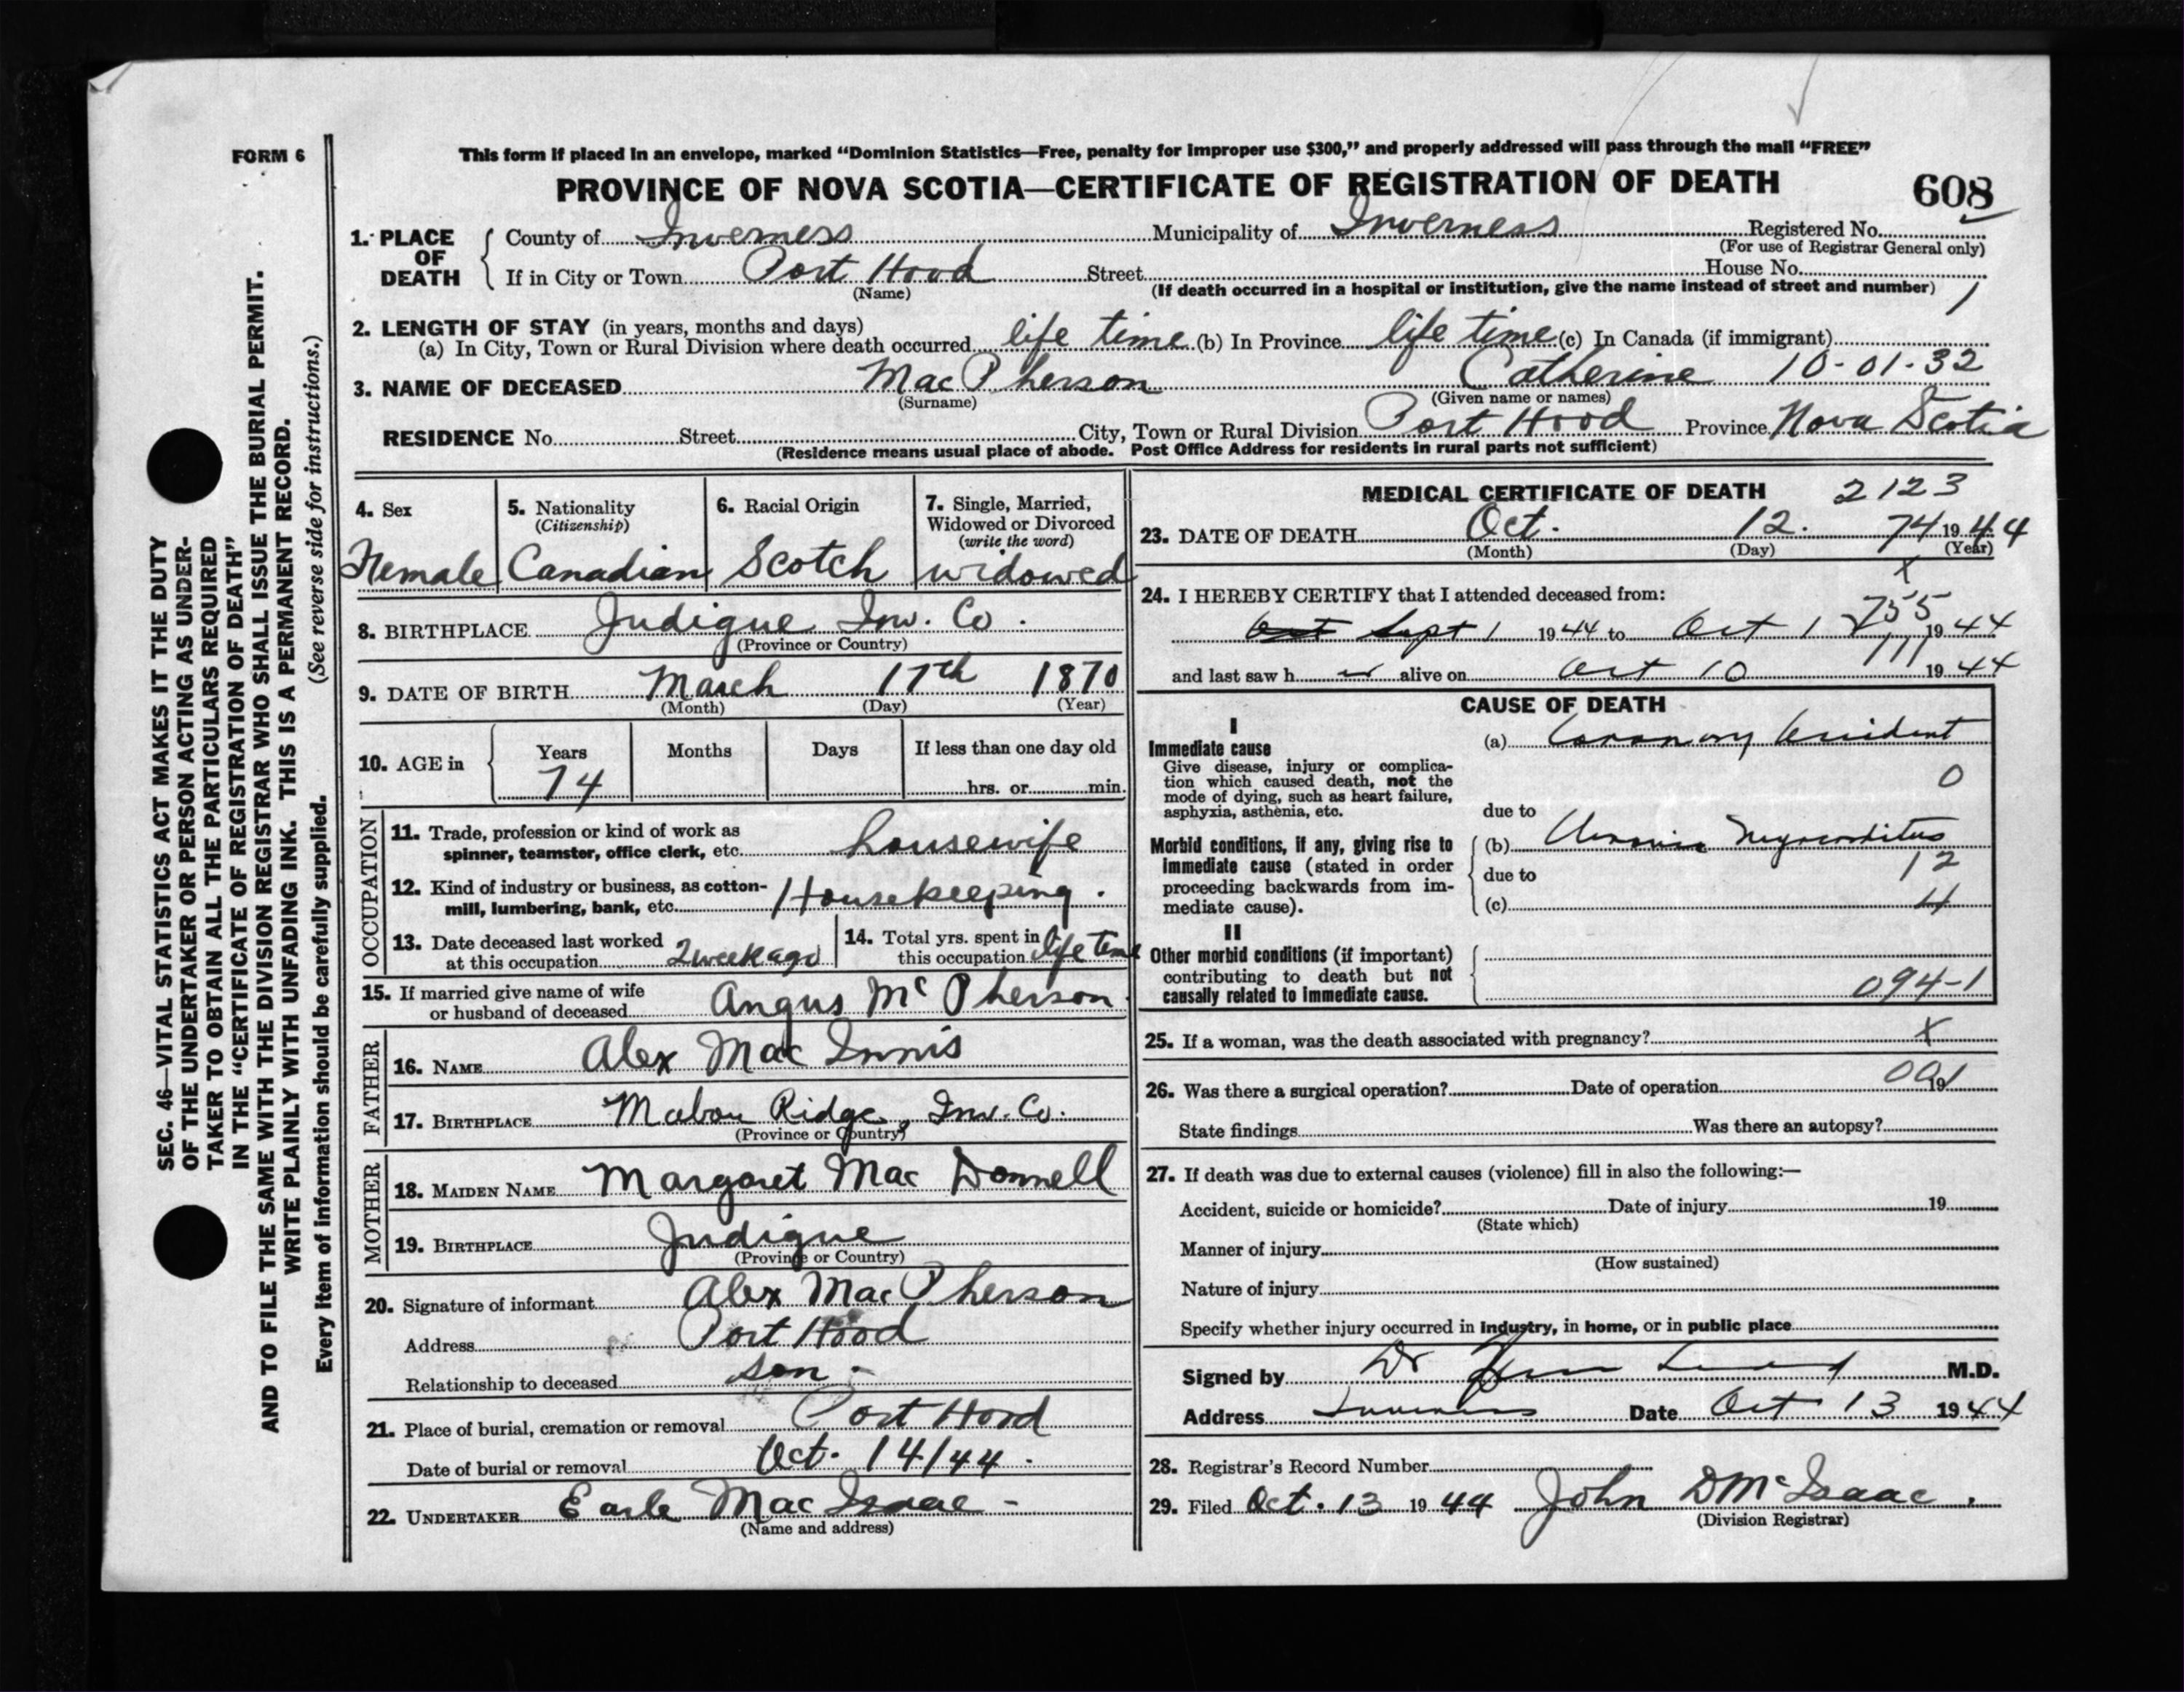 FORM 6
This form if placed in an envelope, marked “Dominion Statistics—Free, penalty for improper use $300,” and properly addressed will pass through the mail “FREE”
PROVINCE OF NOVA SCOTIA—CERTIFICATE OF REGISTRATION OF DEATH
608
1. PLACE OF DEATH
County of Inverness Municipality of Inverness Registered No.
(For use of Registrar General only)
If in City or Town Port Hood Street House No.
(Name) (If death occurred in a hospital or institution, give the name instead of street and number) 1
2. LENGTH OF STAY (in years, months and days)
(a) In City, Town or Rural Division where death occurred life time (b) In Province life time (c) In Canada (if immigrant)
3. NAME OF DECEASED Mac Pherson Catherine 10-01-32
(Surname) (Given name or names)
RESIDENCE No. Street City, Town or Rural Division Port Hood Province Nova Scotia
(Residence means usual place of abode. Post Office Address for residents in rural parts not sufficient)
4. Sex
Female
5. Nationality
(Citizenship)
Canadian
6. Racial Origin
Scotch
7. Single, Married,
Widowed or Divorced
(write the word)
widowed
8. BIRTHPLACE Judique Inv. Co.
(Province or Country)
9. DATE OF BIRTH March 17th 1870
(Month) (Day) (Year)
10. AGE in
Years Months Days If less than one day old
74 hrs. or min.
OCCUPATION
11. Trade, profession or kind of work as
spinner, teamster, office clerk, etc. housewife
12. Kind of industry or business, as cotton-
mill, lumbering, bank, etc. Housekeeping.
13. Date deceased last worked
at this occupation 2 week ago
14. Total yrs. spent in
this occupation life time
15. If married give name of wife
or husband of deceased Angus Mc Pherson
FATHER
16. NAME Alex Mac Innis
17. BIRTHPLACE Mabou Ridge, Inv. Co.
(Province or Country)
MOTHER
18. MAIDEN NAME Margaret Mac Donnell
19. BIRTHPLACE Judique
(Province or Country)
20. Signature of informant Alex Mac Pherson
Address Port Hood
Relationship to deceased son
21. Place of burial, cremation or removal Port Hood
Date of burial or removal Oct. 14/44.
22. UNDERTAKER Earle Mac Isaac -
(Name and address)
MEDICAL CERTIFICATE OF DEATH 2123
23. DATE OF DEATH Oct. 12. 74 1944
(Month) (Day) (Year)
x
24. I HEREBY CERTIFY that I attended deceased from:
Sept 1 1944 to Oct 1 1944
755
and last saw her alive on Oct 10 1944
111
CAUSE OF DEATH
I
Immediate cause
Give disease, injury or complica-
tion which caused death, not the
mode of dying, such as heart failure,
asphyxia, asthenia, etc.
(a) Coronary Accident
0
due to
Morbid conditions, if any, giving rise to
immediate cause (stated in order
proceeding backwards from im-
mediate cause).
(b) Chronic Myocarditus
due to 12
(c) 4
II
Other morbid conditions (if important)
contributing to death but not
causally related to immediate cause.
094-1
25. If a woman, was the death associated with pregnancy? x
26. Was there a surgical operation? Date of operation 19
State findings Was there an autopsy?
27. If death was due to external causes (violence) fill in also the following:—
Accident, suicide or homicide? Date of injury 19
(State which)
Manner of injury
(How sustained)
Nature of injury
Specify whether injury occurred in industry, in home, or in public place
Signed by Dr M.D.
Address Inverness Date Oct 13 1944
28. Registrar's Record Number
29. Filed Oct. 13 1944 John D McIsaac.
(Division Registrar)
SEC. 46—VITAL STATISTICS ACT MAKES IT THE DUTY
OF THE UNDERTAKER OR PERSON ACTING AS UNDER-
TAKER TO OBTAIN ALL THE PARTICULARS REQUIRED
IN THE “CERTIFICATE OF REGISTRATION OF DEATH”
AND TO FILE THE SAME WITH THE DIVISION REGISTRAR WHO SHALL ISSUE THE BURIAL PERMIT.
WRITE PLAINLY WITH UNFADING INK. THIS IS A PERMANENT RECORD.
Every item of information should be carefully supplied. (See reverse side for instructions.)